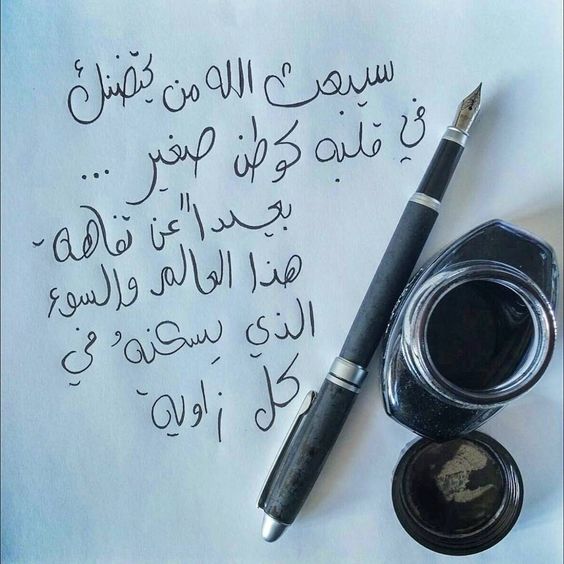 سيبعث الله من يحتضنك
في قلبه كوطن صغير ...
بعيداً عن تفاهة
هذا العالم والسوء
الذي يسكنهُ في
كل زاوية